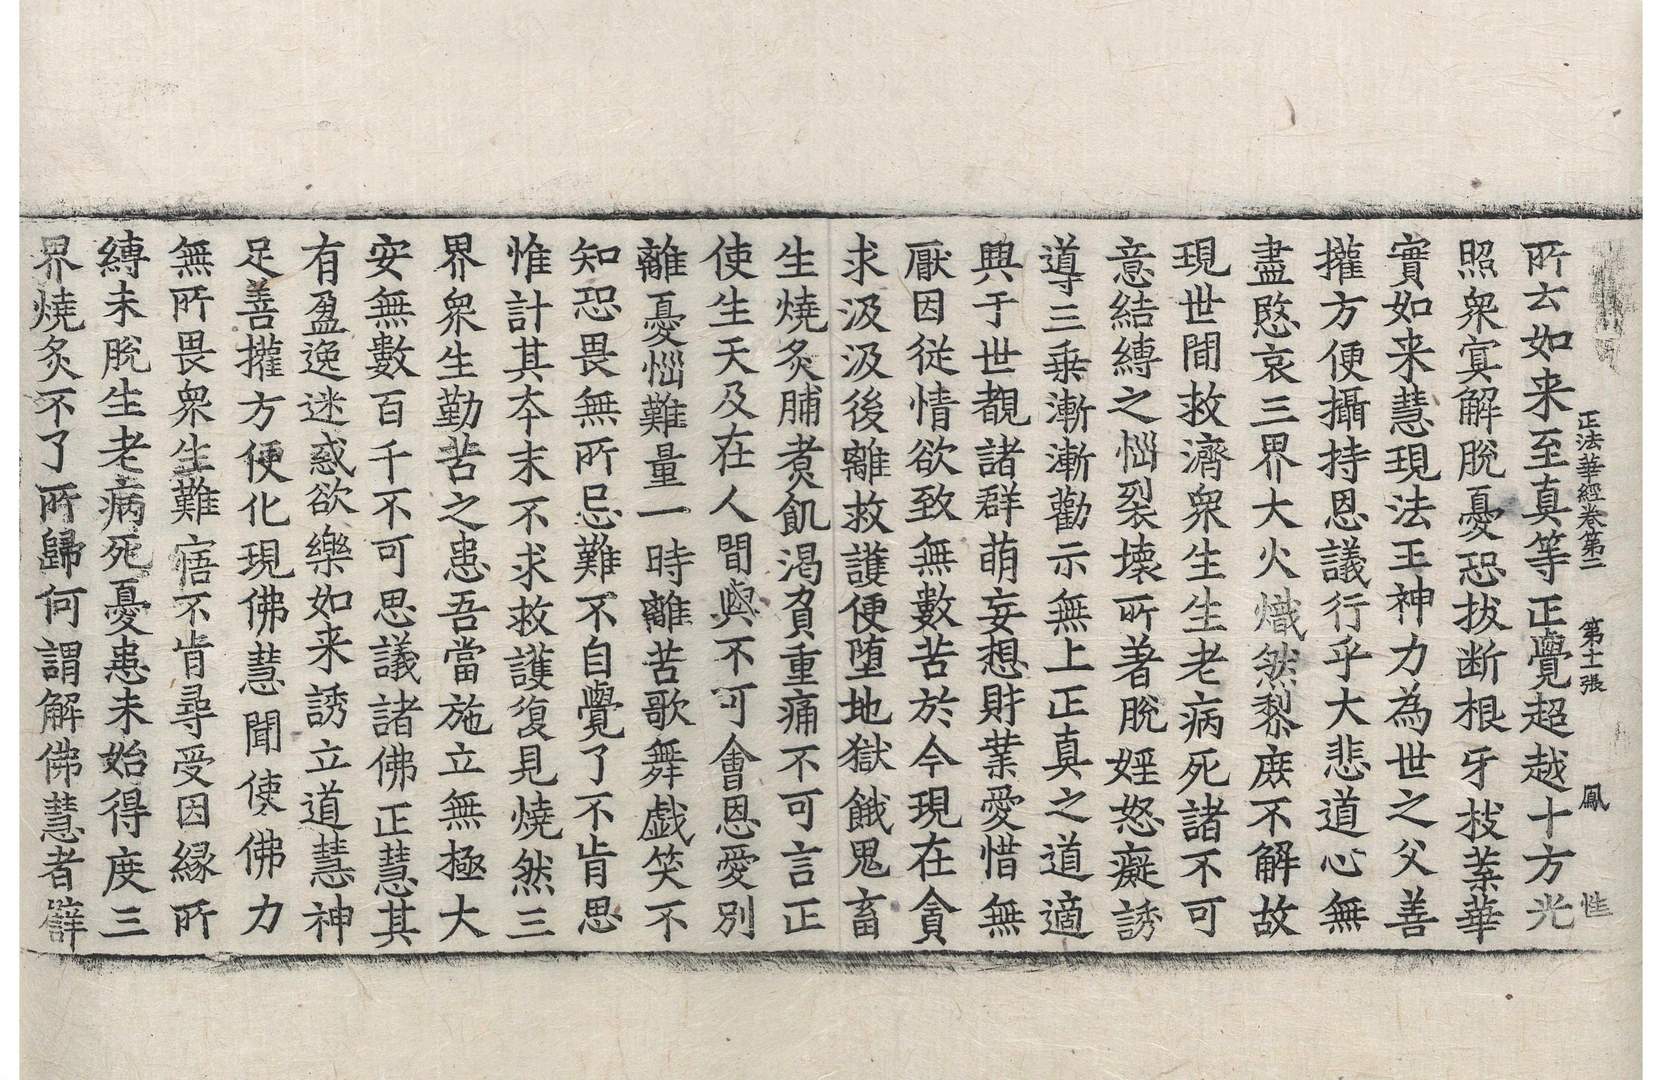 正法華經卷第二 第十一張 鳳 惟
所云如来至真等正覺超越十方光
照衆㝠解脫憂恐拔断根牙枝葉華
實如来慧現法王神力為世之父善
㩲方便攝持恩議行乎大悲道心無
盡愍哀三界大火熾然黎庶不解故
現世間救濟衆生生老病死諸不可
意結縛之惱裂壞所著脫婬怒癡誘
導三乗漸漸勸示無上正真之道適
興于世覩諸群萌妄想財業愛惜無
厭因従情欲致無數苦於今現在貪
求汲汲後離救護便堕地獄餓鬼畜
生燒炙脯煑飢渇負重痛不可言正
使生天及在人間與不可會恩愛別
離憂惱難量一時離苦歌舞戯笑不
知恐畏無所忌難不自覺了不肯思
惟計其夲末不求救護復見燒然三
界衆生勤苦之患吾當施立無極大
安無數百千不可思議諸佛正慧其
有盈逸迷惑欲樂如来誘立道慧神
足善㩲方便化現佛慧聞使佛力
無所畏衆生難寤不肯尋受因縁所
縛未脫生老病死憂患未始得度三
界燒炙不了所歸何謂解佛慧者譬